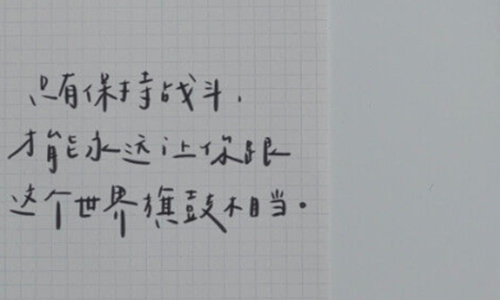 只有保持战斗，
才能永远让你跟
这个世界旗鼓相当。